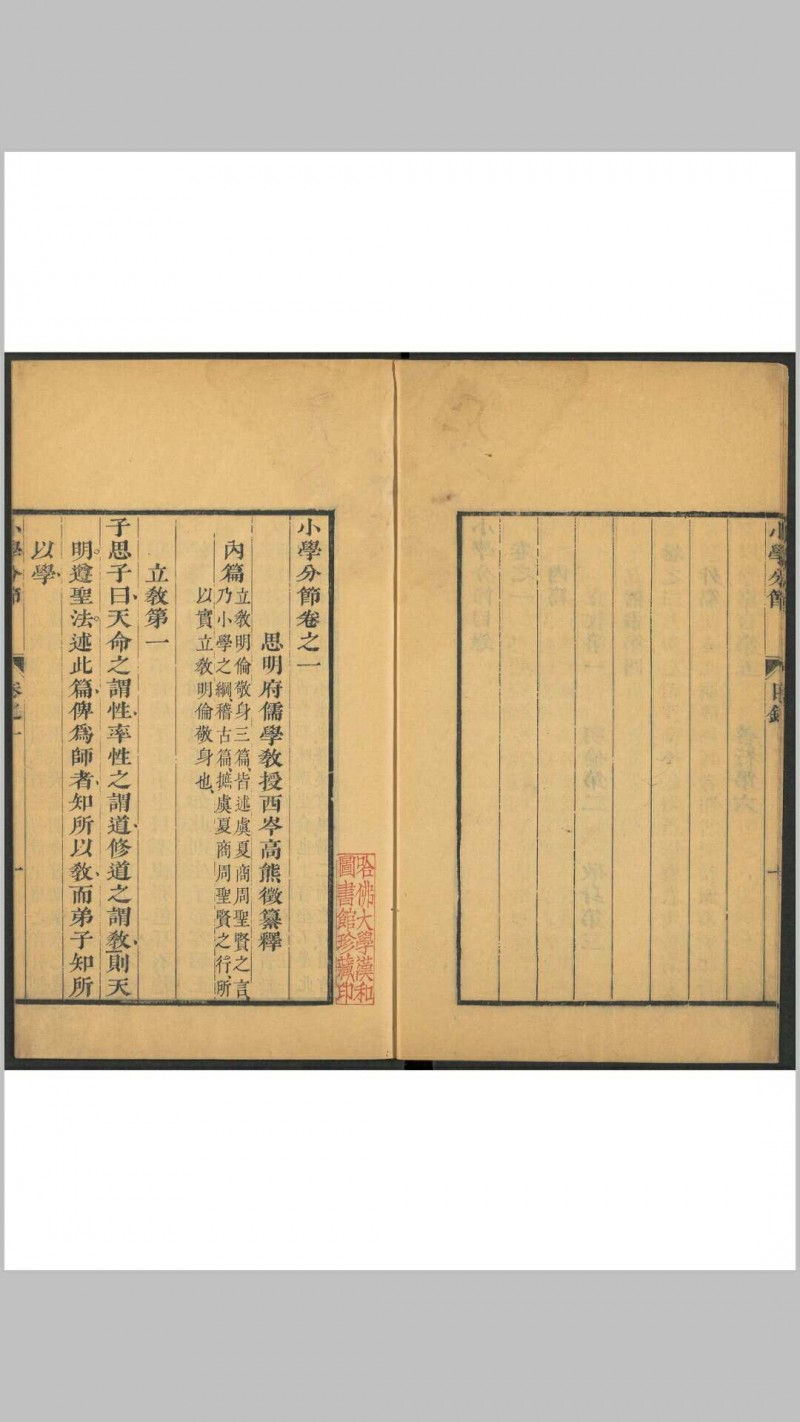 小學分節
目錄
小學分節卷之一
思明府儒學教授西岑高熊徵纂釋
內篇
立敎明倫敬身三篇、皆述虞夏商周聖賢之言、
乃小學之綱、稽古篇、摭虞夏商周聖賢之行、所
以實立敎明倫敬身也、
立敎第一
子思子曰、天命之謂性、率性之謂道、修道之謂敎、則天
明、遵聖法、述此篇、俾爲師者、知所以敎、而弟子知所
以學、
小學分節
卷之一
一
哈佛大學漢和
圖書館珍藏印